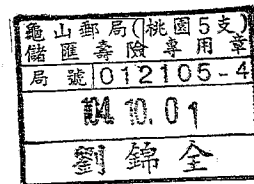 龜山郵局(桃園5支)
儲匯壽險專用章
局號 012105-4
104.10.01
劉錦全